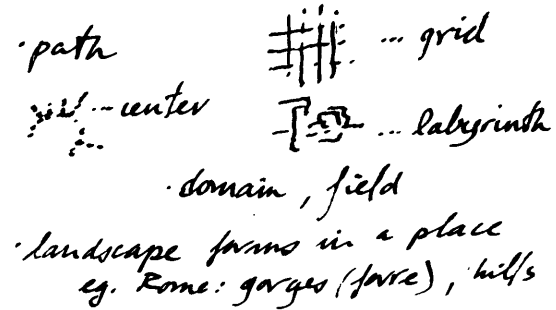 · path
... grid
... center
... labyrinth
· domain, field
· landscape forms in a place
eg. Rome: gorges (forre), hills